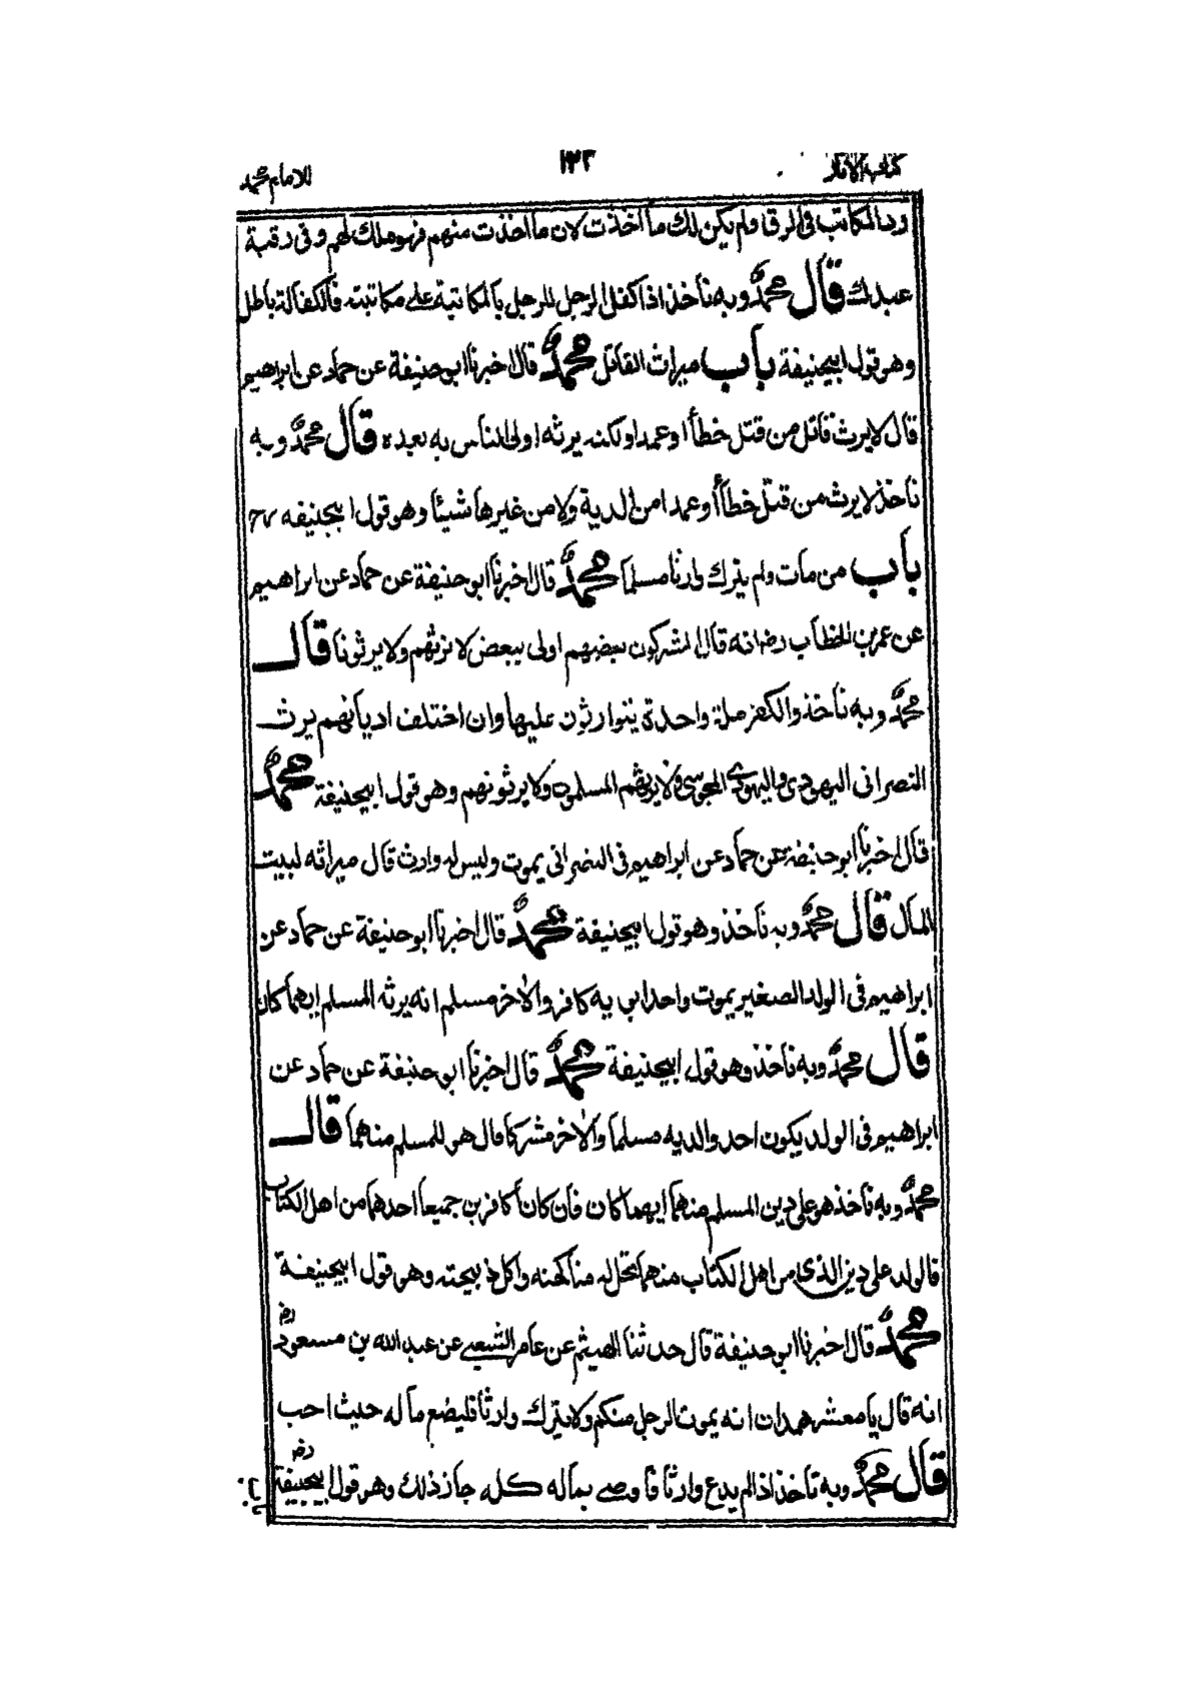 كتاب الآثار ١٣٢ للامام محمد
رد المكاتب فى الرق ولم يكن لك ما اخذت لان ما اخذت منهم فهو ملك لهم وفى رقبة
عبدك قال محمد وبه ناخذ اذا كفل الرجل للرجل بالمكاتبة على مكاتبته فالكفالة باطل
وهو قول ابيحنيفة باب ميراث القاتل محمد قال اخبرنا ابو حنيفة عن حماد عن ابراهيم
قال لا يرث قاتل من قتل خطأ او عمدا ولكنه يرثه اولى الناس به بعده قال محمد وبه
ناخذ لا يرث من قتل خطأ أو عمدا من الدية ولا من غيرها شيئا وهو قول ابيحنيفه
باب من مات ولم يترك وارثا مسلما محمد قال اخبرنا ابو حنيفة عن حماد عن ابراهيم
عن عمر بن الخطاب رضہ انه قال المشركون بعضهم اولى ببعض لا نرثهم ولا يرثونا قال
محمد وبه ناخذ والكفر ملة واحدة يتوارثون عليها وان اختلف اديانهم يرث
النصرانى اليهودى واليهودى المجوسى ولا يرثهم المسلمون ولا يرثونهم وهو قول ابيحنيفة محمد
قال اخبرنا ابو حنيفة عن حماد عن ابراهيم فى النصرانى يموت وليس له وارث قال ميراثه لبيت
المال قال محمد وبه ناخذ وهو قول ابيحنيفة محمد قال اخبرنا ابو حنيفة عن حماد عن
ابراهيم فى الولد الصغير يموت واحد ابويه كافر والاخر مسلم انه يرثه المسلم ايهما كان
قال محمد وبه ناخذ وهو قول ابيحنيفة محمد قال اخبرنا ابو حنيفة عن حماد عن
ابراهيم فى الولد يكون احد والديه مسلما والاخر مشركا قال هو للمسلم منهما قال
محمد وبه ناخذ هو على دين المسلم منهما ايهما كان فان كان كافرين جميعا احدهما من اهل الكتاب
فالولد على دين الذى من اهل الكتاب منهما تحل له مناكحته واكل ذبيحته وهو قول ابيحنيفة
محمد قال اخبرنا ابو حنيفة قال حدثنا الهيثم عن عامر الشعبى عن عبد الله بن مسعود رضہ
انه قال يا معشر همدان انه يموت الرجل منكم ولا يترك وارثا فليضع ماله حيث احب
قال محمد وبه ناخذ اذا لم يدع وارثا فاوصى بماله كله جاز ذلك وهو قول ابيحنيفة رضہ
باب